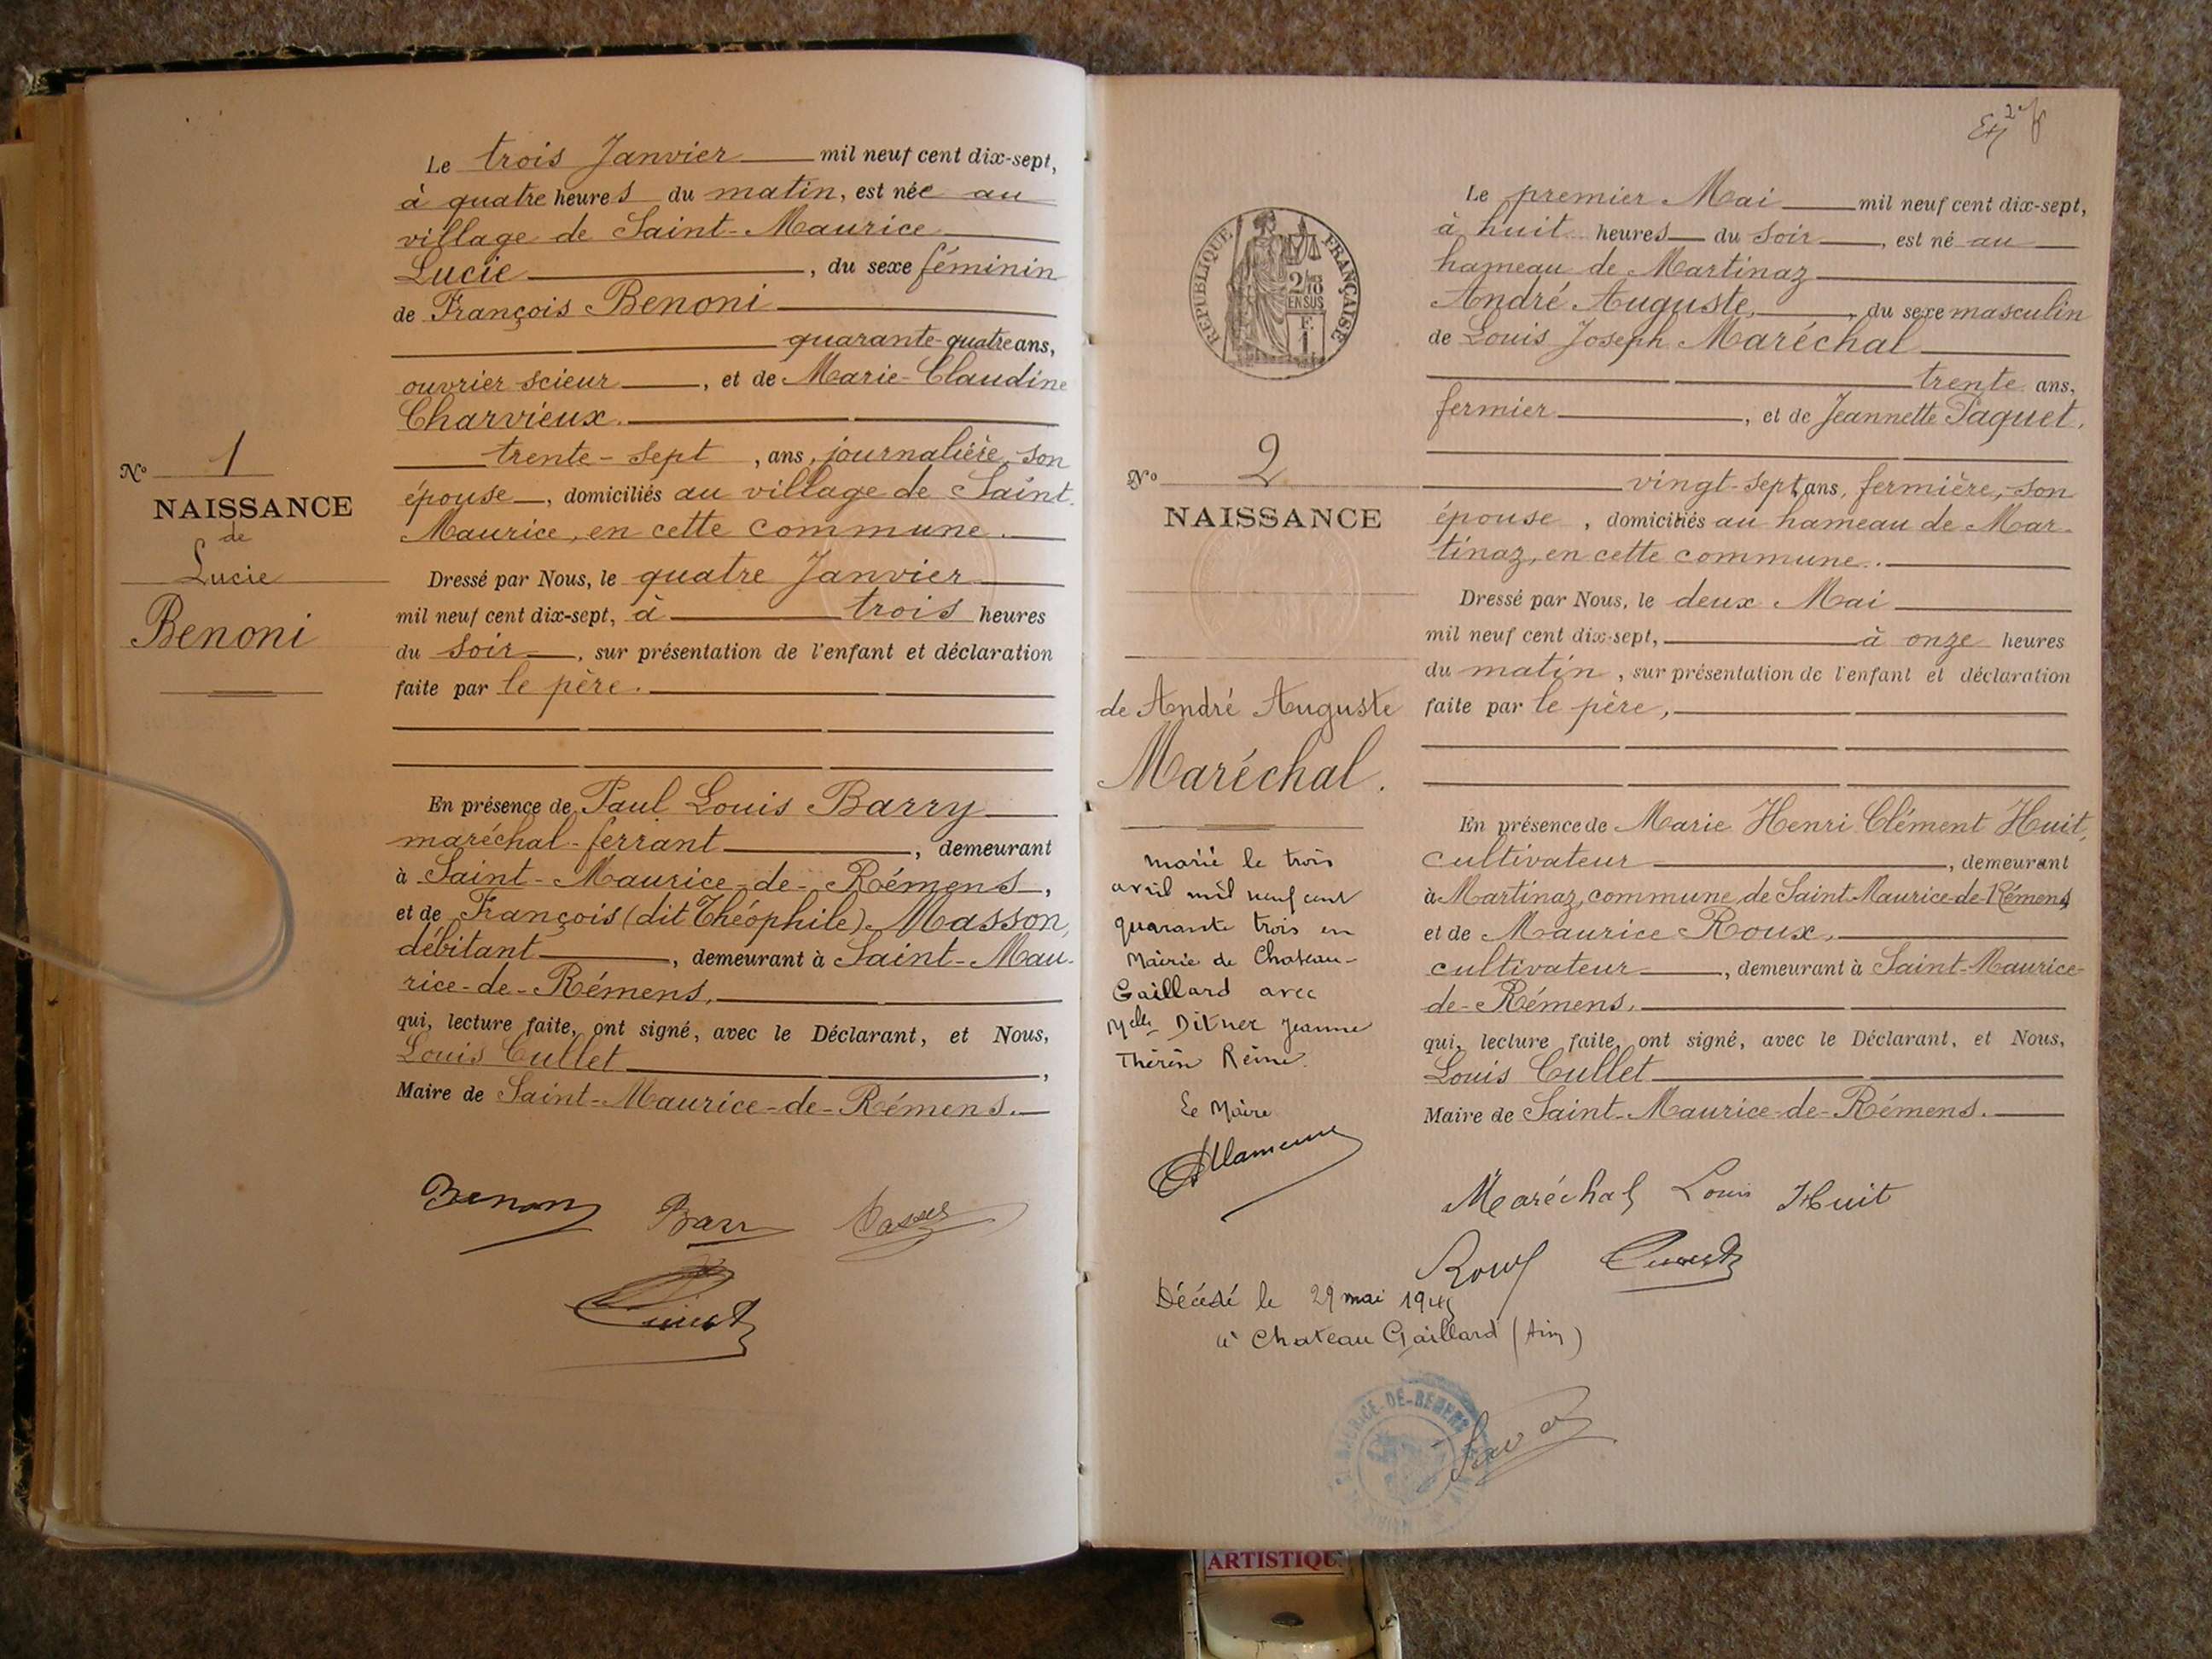 Le trois Janvier mil neuf cent dix-sept,
à quatre heures du matin, est née au
village de Saint-Maurice
Lucie, du sexe féminin
de François Benoni
quarante-quatre ans,
ouvrier scieur, et de Marie-Claudine
Charvieux.
trente-sept, ans, journalière, son
épouse, domiciliés au village de Saint-
Maurice, en cette commune.
Dressé par Nous, le quatre Janvier
mil neuf cent dix-sept, à trois heures
du soir, sur présentation de l'enfant et déclaration
faite par le père.
En présence de Paul Louis Barry
maréchal-ferrant, demeurant
à Saint-Maurice-de-Rémens,
et de François (dit Théophile) Masson,
débitant, demeurant à Saint-Mau-
rice-de-Rémens,
qui, lecture faite, ont signé, avec le Déclarant, et Nous,
Louis Cullet,
Maire de Saint-Maurice-de-Rémens.
No 1
NAISSANCE
de
Lucie
Benoni
RÉPUBLIQUE FRANÇAISE
2/10
EN SUS
F.
1
No 2
NAISSANCE
de André Auguste
Maréchal.
marié le trois
avril mil neuf cent
quarante trois en
Mairie de Chateau-
Gaillard avec
Melle Ditner Jeanne
Reine.
Le Maire
Le premier Mai mil neuf cent dix-sept,
à huit heures du soir, est né au
hameau de Martinaz
André Auguste, du sexe masculin
de Louis Joseph Maréchal
trente ans,
fermier, et de Jeannette Paquet,
vingt-sept, ans, fermière, son
épouse, domiciliés au hameau de Mar-
tinaz, en cette commune.
Dressé par Nous, le deux Mai
mil neuf cent dix-sept, à onze heures
du matin, sur présentation de l'enfant et déclaration
faite par le père,
En présence de Marie Henri Clément Huit,
cultivateur, demeurant
à Martinaz, commune de Saint-Maurice-de-Rémens
et de Maurice Roux,
cultivateur, demeurant à Saint-Maurice-
de-Rémens,
qui, lecture faite, ont signé, avec le Déclarant, et Nous,
Louis Cullet
Maire de Saint-Maurice-de-Rémens.
Maréchal Louis Huit
Roux
Décédé le 29 mai
à Chateau Gaillard (Ain)
MAURICE-DE-REMENS
ARTISTIQU